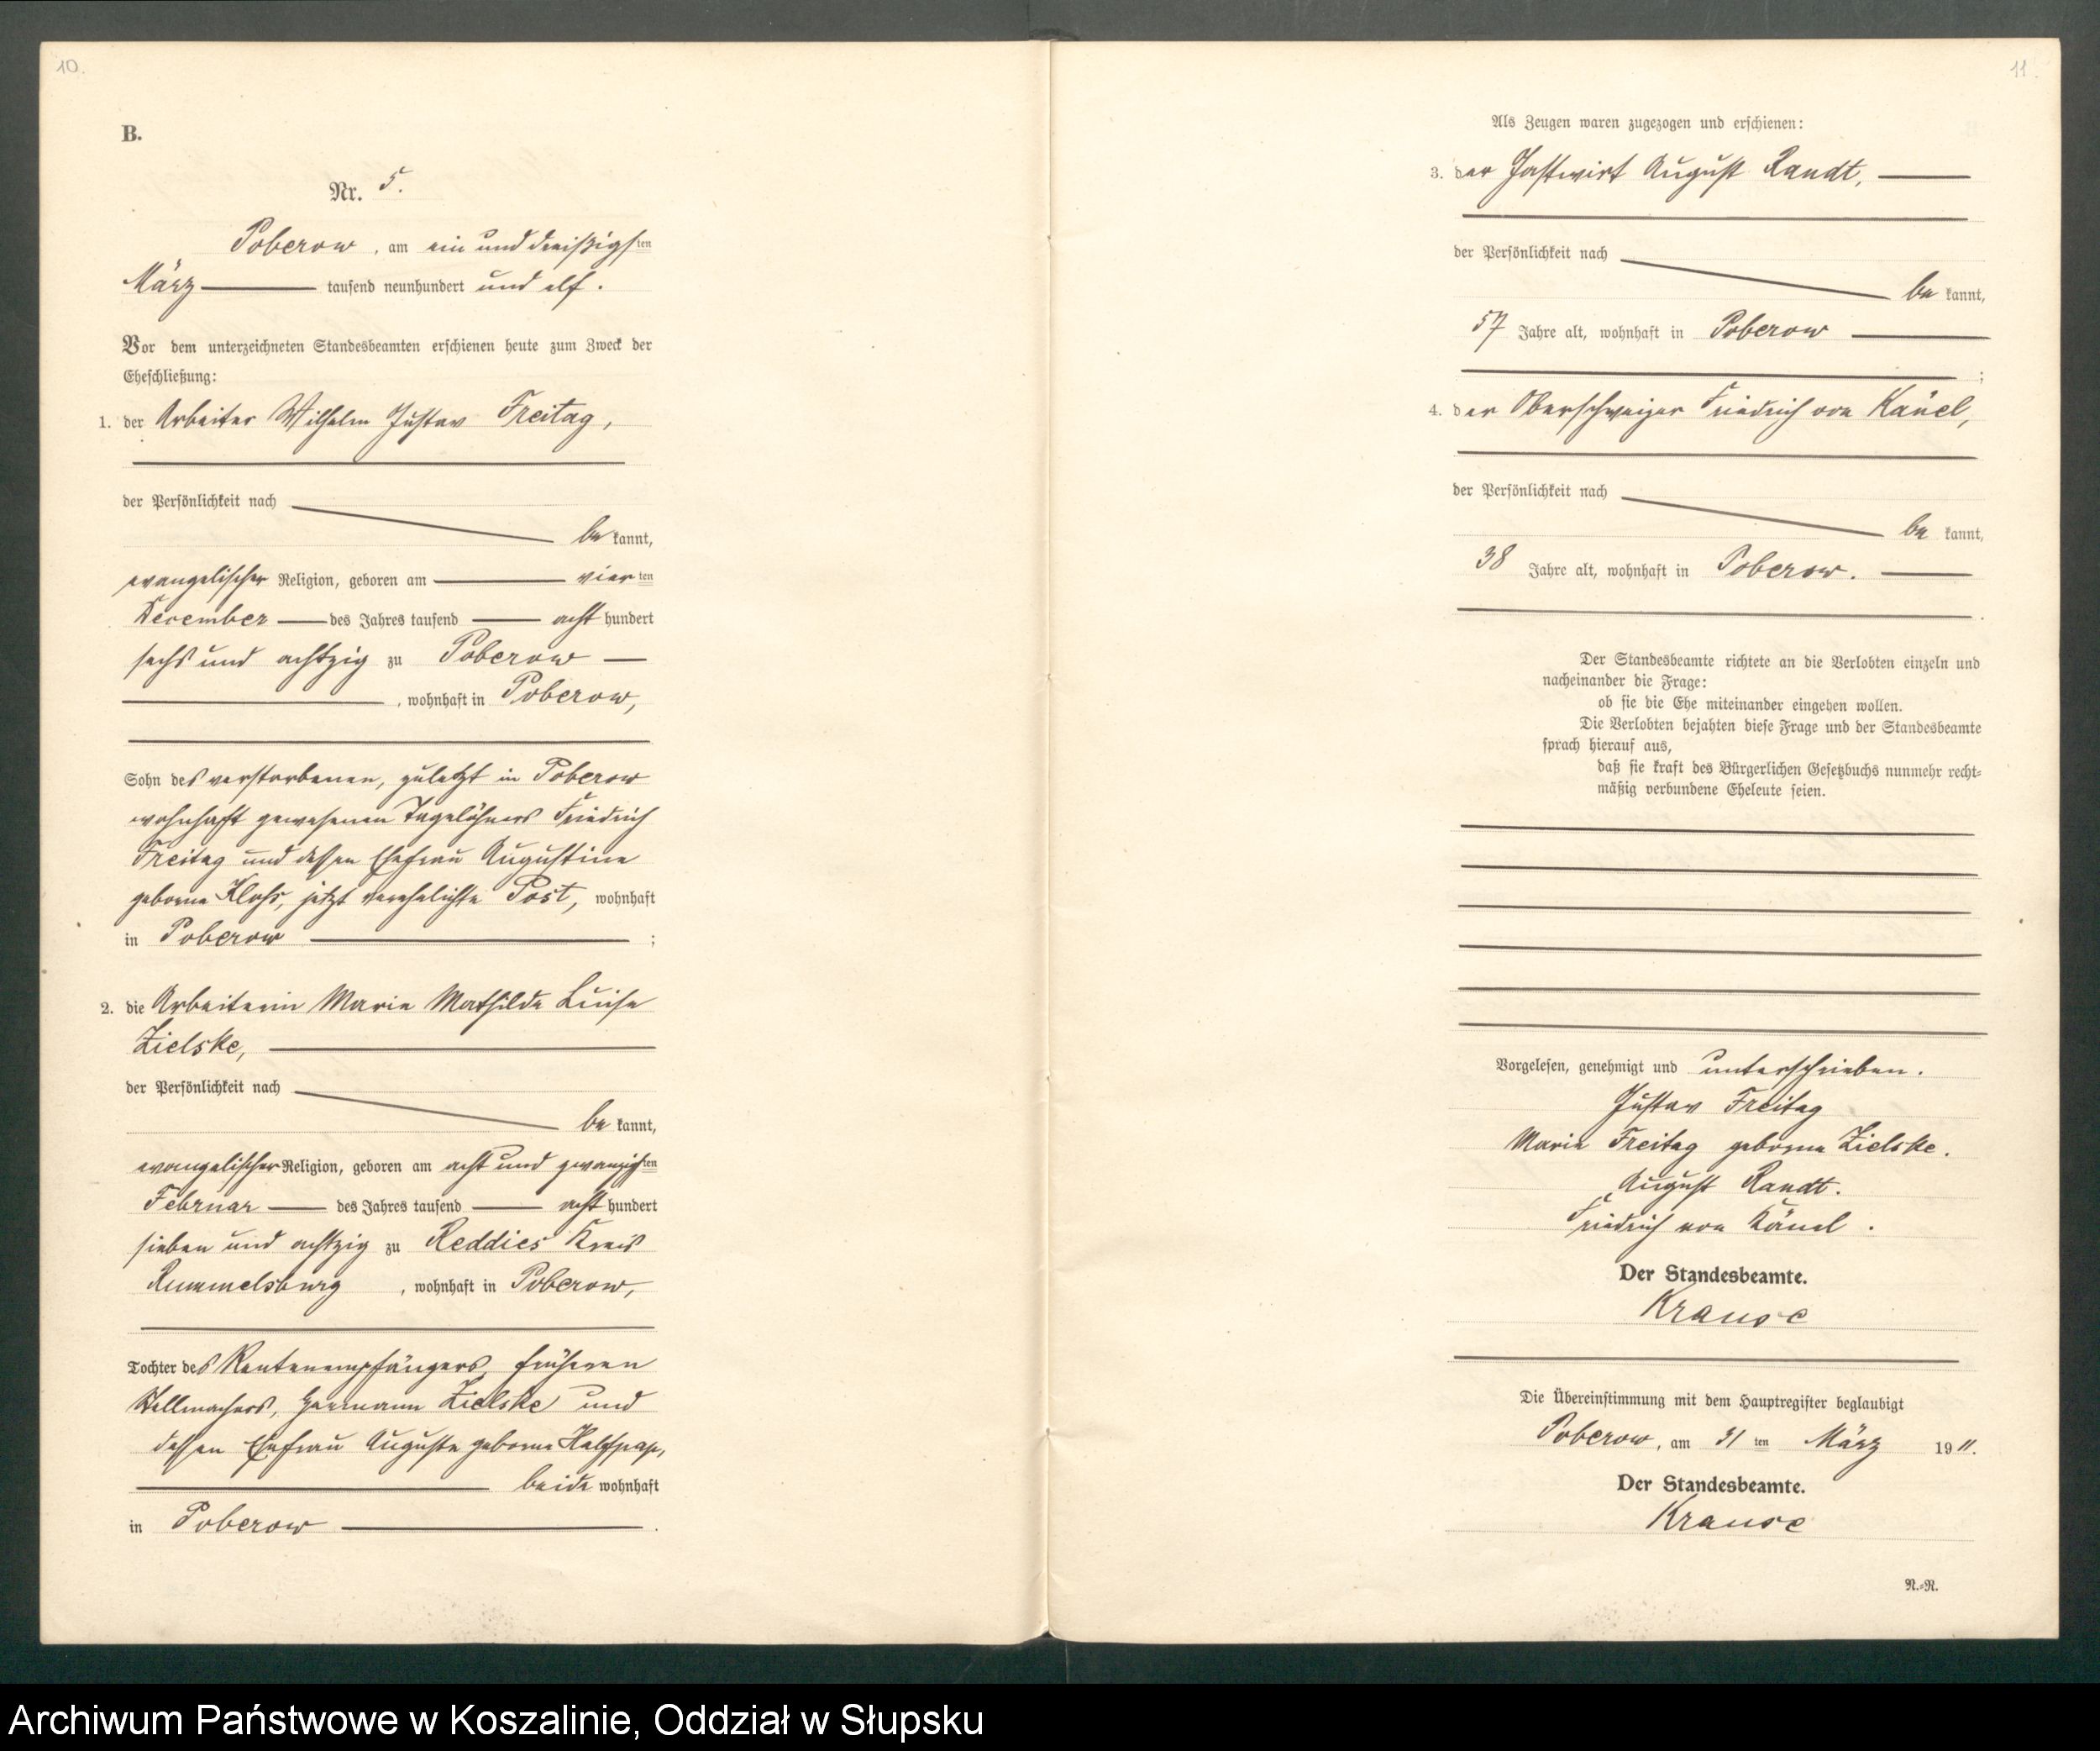 10.
B.
Nr. 5.
Poberow, am ein und dreißigsten
März tausend neunhundert und elf.
Vor dem unterzeichneten Standesbeamten erschienen heute zum Zweck der
Eheschließung:
1. der Arbeiter Wilhelm Gustav Freitag,
der Persönlichkeit nach
bekannt,
evangelischer Religion, geboren am vierten
December des Jahres tausend acht hundert
sechs und achtzig zu Poberow
, wohnhaft in Poberow,
Sohn des verstorbenen, zuletzt in Poberow
wohnhaft gewesenen Tagelöhners Friedrich
Freitag und dessen Ehefrau Augustine
geborne jetzt verehelichte Post, wohnhaft
in Poberow ;
2. die Arbeiterin Marie Mathilde Luise
Zielske,
der Persönlichkeit nach
bekannt,
evangelischer Religion, geboren am acht und zwanzigsten
Februar des Jahres tausend acht hundert
sieben und achtzig zu Reddies Kreis
Rummelsburg , wohnhaft in Poberow,
Tochter des Rentenempfängers, früheren
Stellmachers, Hermann Zielske und
dessen Ehefrau Auguste geborne
beide wohnhaft
in Poberow .
11.
Als Zeugen waren zugezogen und erschienen:
3. der Gastwirt August Randt,
der Persönlichkeit nach
bekannt,
57 Jahre alt, wohnhaft in Poberow
;
4. der Oberschweizer Friedrich von Känel,
der Persönlichkeit nach
bekannt,
38 Jahre alt, wohnhaft in Poberow.
.
Der Standesbeamte richtete an die Verlobten einzeln und
nacheinander die Frage:
ob sie die Ehe miteinander eingehen wollen.
Die Verlobten bejahten diese Frage und der Standesbeamte
sprach hierauf aus,
daß sie kraft des Bürgerlichen Gesetzbuchs nunmehr recht-
mäßig verbundene Eheleute seien.
Vorgelesen, genehmigt und unterschrieben.
Gustav Freitag
Marie Freitag geborne Zielske.
August Randt.
Friedrich von Känel.
Der Standesbeamte.
Krause
Die Übereinstimmung mit dem Hauptregister beglaubigt
Poberow, am 31ten März 1911.
Der Standesbeamte.
Krause
N.-N.
Archiwum Państwowe w Koszalinie, Oddział w Słupsku